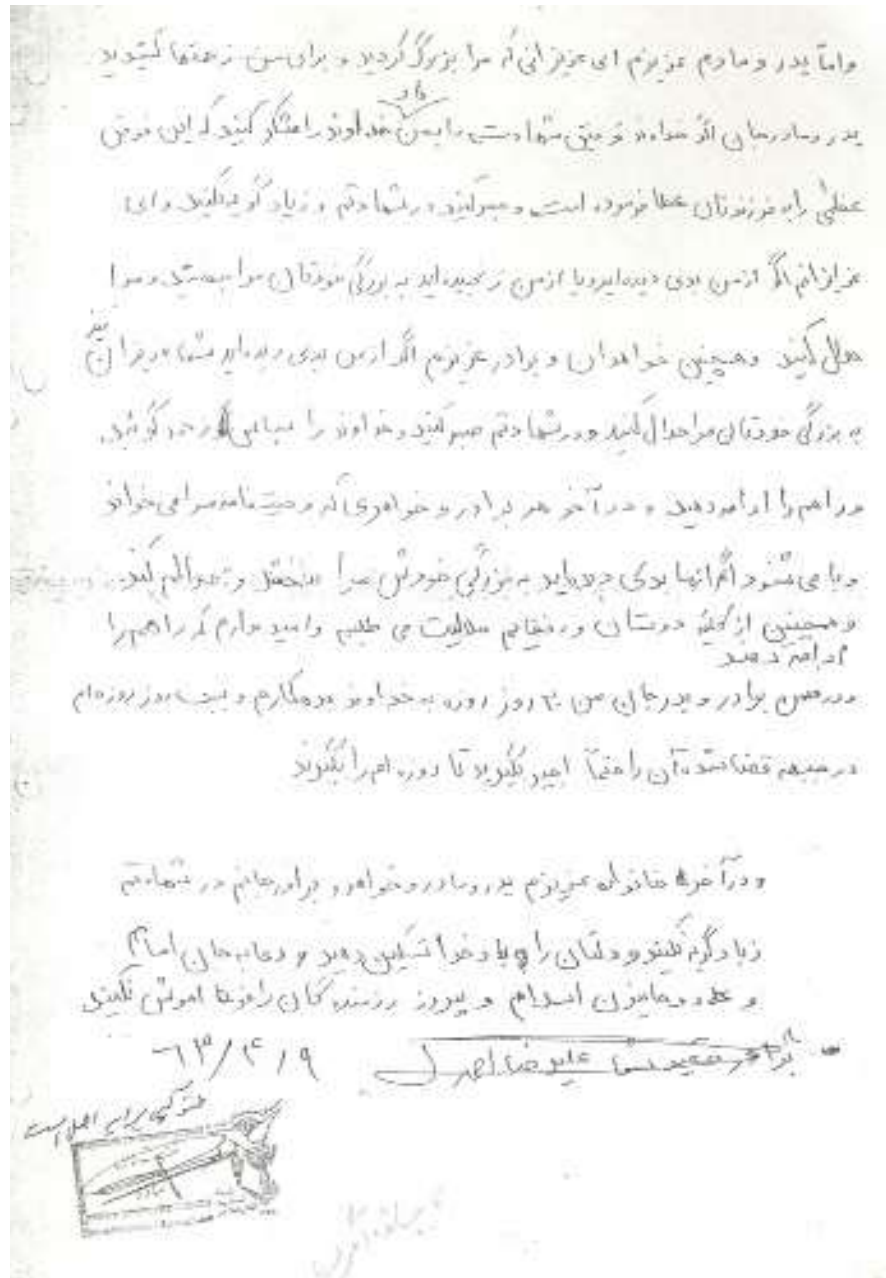 واما پدر و مادرم عزیزم ای عزیزانی که مرا بزرگ کردید و برای من زحمتها کشیدید
پدر و مادر جان اگر خداوند توفیق شهادت را بمن داد خداوند را شکر کنید که این توفیق
عظمی را به فرزندتان عطا فرموده است و صبر کنید در شهادتم و زیاد گریه نکنید و ای
عزیزانم اگر از من بدی دیده اید و یا از من رنجیده اید به بزرگی خودتان مرا ببخشید و مرا
حلال کنید و همچنین خواهران و برادر عزیزم اگر از من بدی دیده اید شما
به بزرگی خودتان مرا حلال کنید و در شهادتم صبر کنید و خداوند را
و راهم را ادامه دهید و در آخر هر برادر و خواهری که وصیت نامه مرا می خواند
و یا می شنود اگر از ما بدی دیده اید به بزرگی خودش مرا و حلالم کند
و همچنین از کلیه دوستان و رفقایم حلالیت می طلبم و امید وارم که راهم را
ادامه دهند
و در ضمن برادر و پدر جان من ۳۰ روز روزه به خداوند بدهکارم و بیست روز روزه ام
در جبهه قضا شده آن را حتماً اجیر بگیرید تا روزه ام را بگیرند
و در آخر خانواده عزیزم پدر و مادر و خواهر و برادر جانم در شهادتم
زیاد گریه نکنید و دلتان را با یاد خدا تسکین دهید و دعا به جان امام
و رزمندگان را فراموش نکنید
علیرضا
۶۳/۴/۹
کپی برابر اصل است